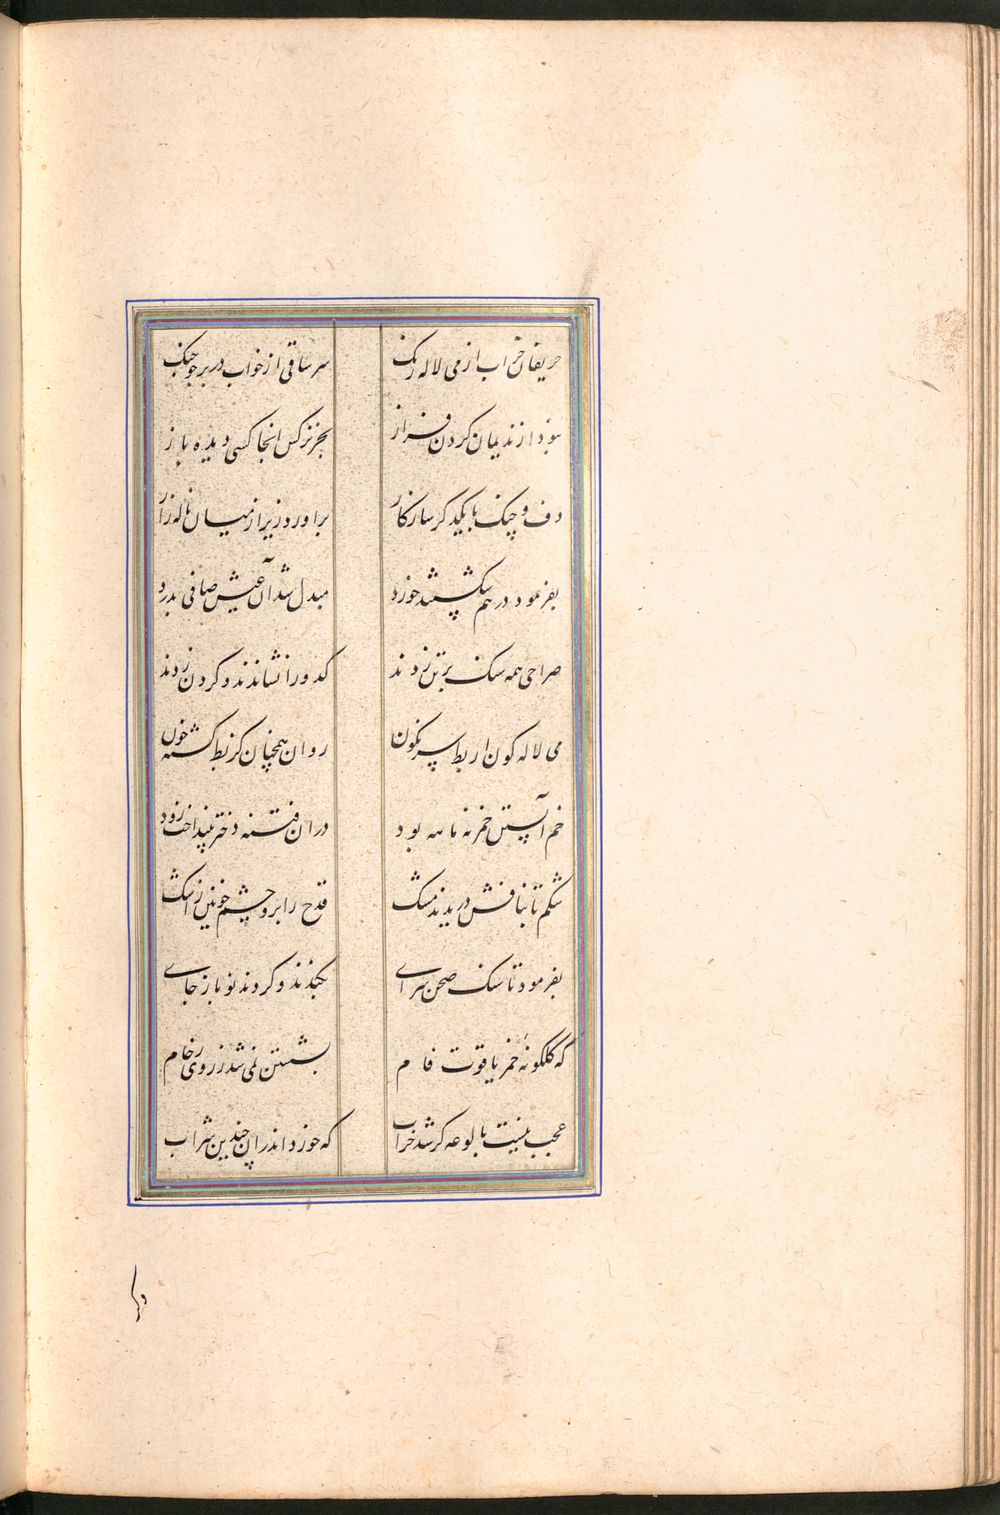 حریفان خراب از می لاله رنک سر ساقی از خواب در بر چو چنک
نبود از ندیمان کردن فراز بجز نرکس انجا کسی دیده باز
دف و چنک با یکدکر سازکار براورد زیر از میان ناله زار
بفرمود در هم شکستند خورد مبدل شد آن عیش صافی بدرد
صراحی همه سنک بر تن زدند کدو را نشاندند و کردن زدند
می لاله کون از بط سرنکون روان همچنان کز بط کشته خون
خم آبستن خمر نه ماهه بود دران فتنه دختر بینداخت زود
شکم تا بنافش دریدند مشک قدح را برو چشم خونین ز اشک
بفرمود تا سنک صحن سرای بکندند و کردند نو باز جای
که کلکونه خمر یاقوت فام بشستن نمی شد ز روی رخام
عجب نیست بالوعه کر شد خراب که خورد اندران چندین شراب